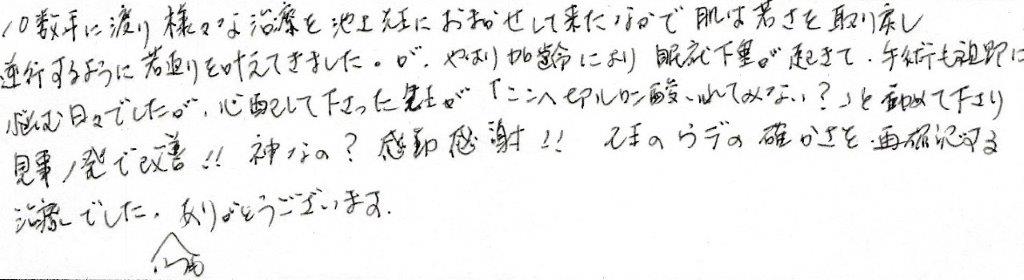 10数年に渡り様々な治療を池上先生におまかせして来たなかで肌は若さを取り戻し
逆行するように若返りを叶えてきました。が、やはり加齢により眼瞼下垂が起きて、手術も視野に
悩む日々でしたが、心配して下さった先生が「ここへヒアルロン酸いれてみない？」と勧めて下さり
見事1発で改善!! 神なの？感動感謝!! 先生のウデの確かさを再確認する
治療でした。ありがとうございます。
いつも